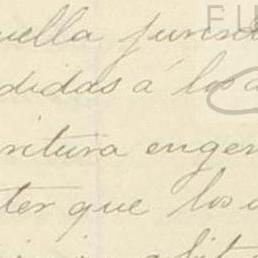 FU
uella jurisd
didas á los a
ritura engen
ter que los